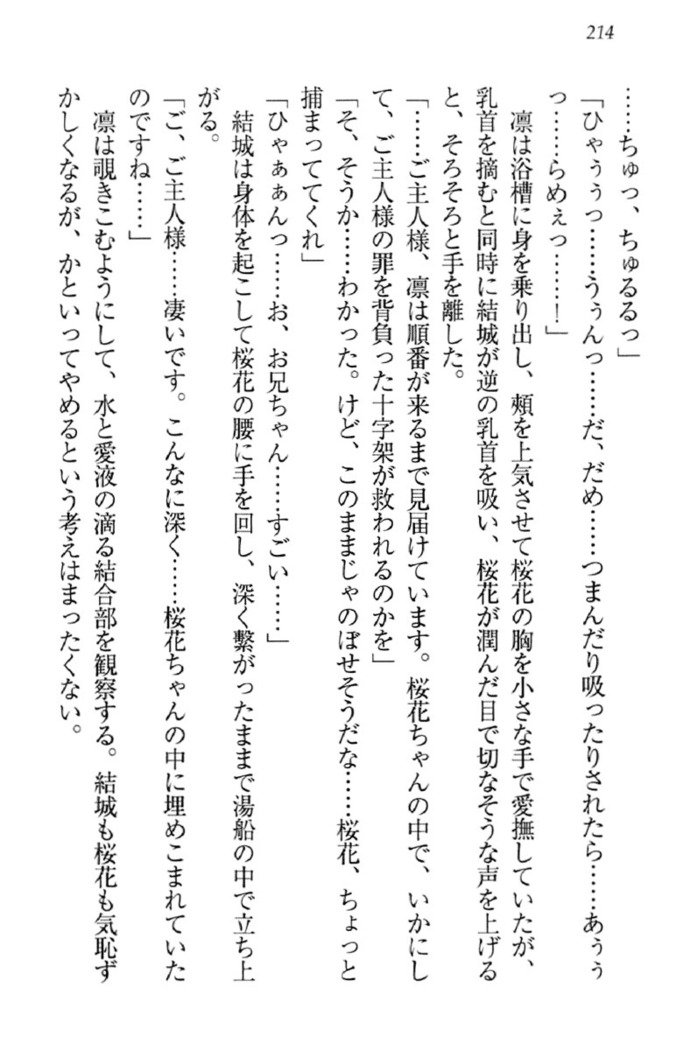 214
……ちゅっ、ちゅるるっ」
「ひゃぅぅっ……うぅんっ……だ、だめ……つまんだり吸ったりされたら……あぅぅ
っ……らめぇっ……！」
凛は浴槽に身を乗り出し、頰を上気させて桜花の胸を小さな手で愛撫していたが、
乳首を摘むと同時に結城が逆の乳首を吸い、桜花が潤んだ目で切なそうな声を上げる
と、そろそろと手を離した。
「……ご主人様、凛は順番が来るまで見届けています。桜花ちゃんの中で、いかにし
て、ご主人様の罪を背負った十字架が救われるのかを」
「そ、そうか……わかった。けど、このままじゃのぼせそうだな……桜花、ちょっと
捕まっててくれ」
「ひゃぁぁんっ……お、お兄ちゃん……すごい……」
結城は身体を起こして桜花の腰に手を回し、深く繫がったままで湯船の中で立ち上
がる。
「ご、ご主人様……凄いです。こんなに深く……桜花ちゃんの中に埋めこまれていた
のですね……」
凛は覗きこむようにして、水と愛液の滴る結合部を観察する。結城も桜花も気恥ず
かしくなるが、かといってやめるという考えはまったくない。